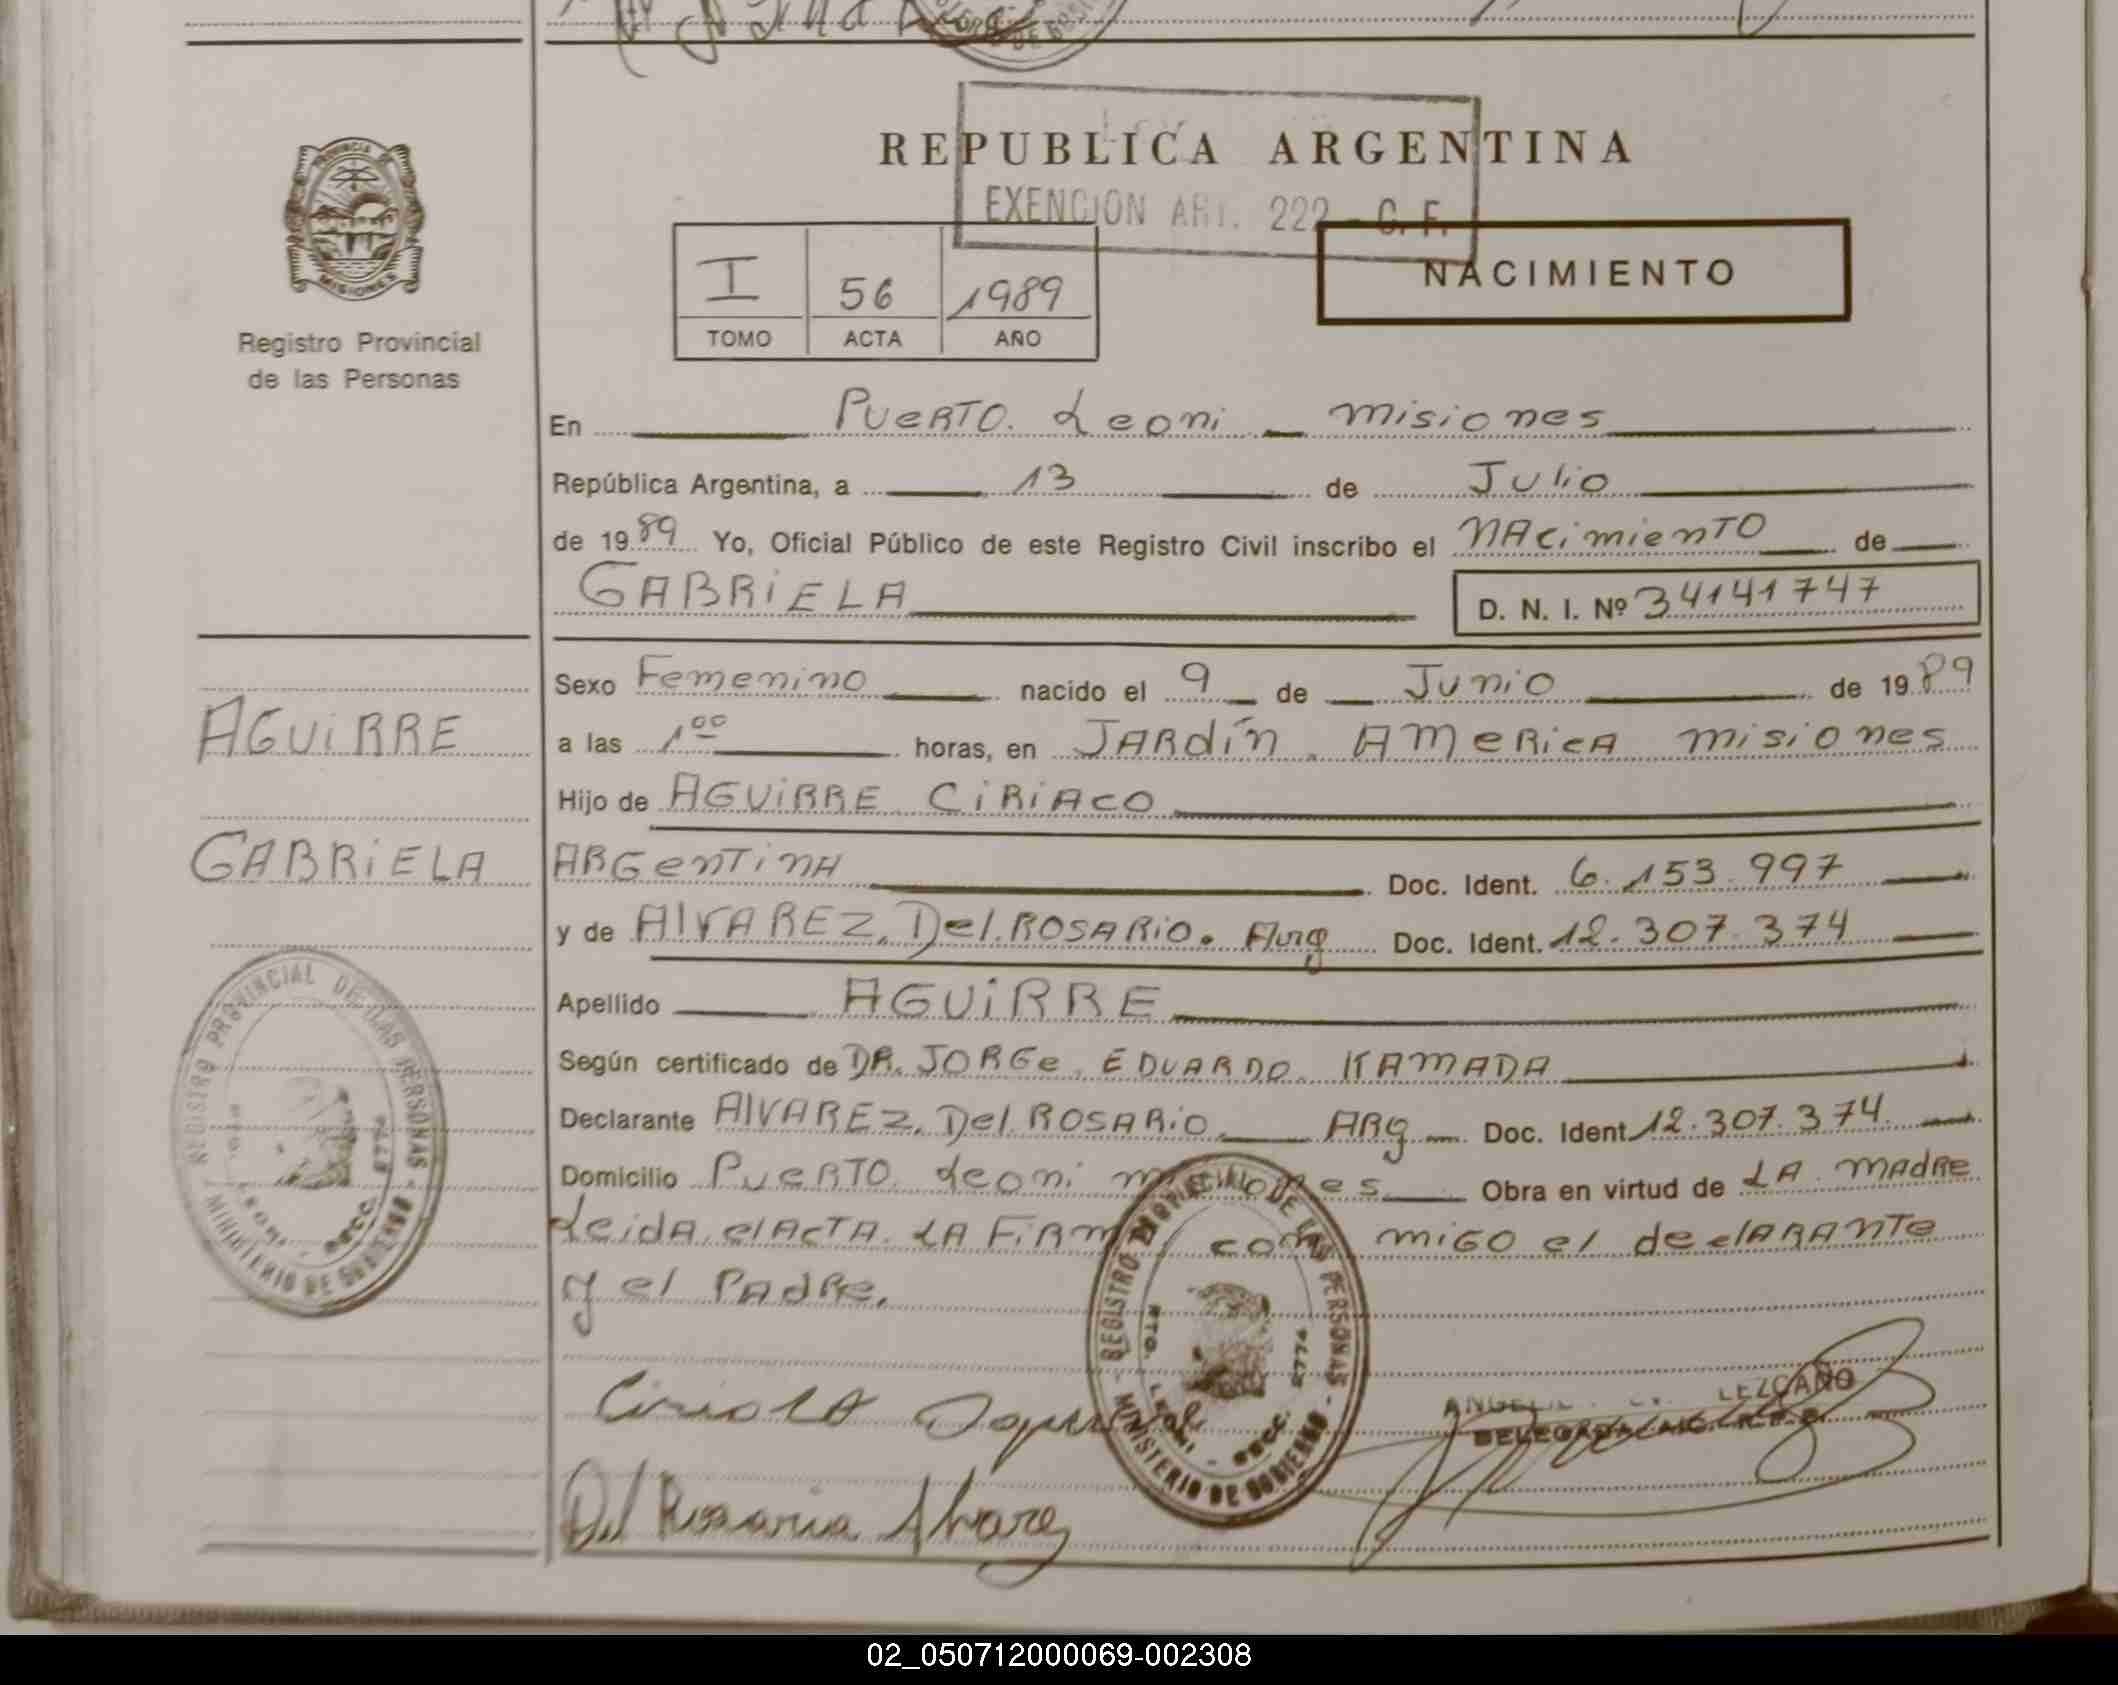 REPUBLICA ARGENTINA
EXENCION ART. 222 - C. F.
NACIMIENTO
PROVINCIA DE
MISIONES
Registro Provincial
de las Personas
I 56 1989
TOMO ACTA AÑO
En PUERTO Leoni misiones
República Argentina, a 13 de Julio
de 1989 Yo, Oficial Público de este Registro Civil inscribo el NAcimienTO de
GABRiELA D. N. I. Nº 34141747
Sexo Femenino nacido el 9 de Junio de 1989
a las 1 00 horas, en JARdín AMeRicA misiones
Hijo de AGUiRRE CiRiACO
ARGenTinA Doc. Ident. 6.153.997
y de AlVAREZ, Del ROSARiO. Arg Doc. Ident. 12.307.374
Apellido AGUiRRE
Según certificado de DR. JORGe EDUARDO KAMADA
Declarante AlVAREZ, Del ROSARiO ARg Doc. Ident 12.307.374
Domicilio PUERTO Leoni misiones Obra en virtud de LA MAdRe
Leida el ActA LA FiRMA con miGO el declARAnTe
y el PAdRe.
AGUiRRE
GABRiELA
REGISTRO PROVINCIAL DE LAS PERSONAS - MINISTERIO DE GOBIERNO -
PTO. LEONI - DECC. 2774
REGISTRO PROVINCIAL DE LAS PERSONAS - MINISTERIO DE GOBIERNO -
PTO. LEONI - DECC. 2774
LEZCANO
DELEGADA
Del Rosario Alvarez
02_050712000069-002308